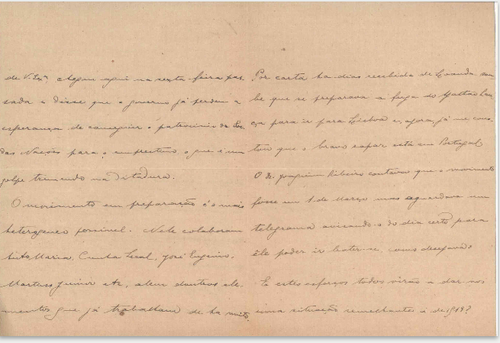 de V. Exª chegou aqui na sexta-feira pas-
sada a dizer que o governo já perdeu a
esperança de conseguir o patrocinio da So-
das Nações para o emprestimo o que é um
golpe tremendo na Ditadura.
O movimento em preparação é o mais
heterogeneo possivel. Nele colaboram
Cunha Leal, José Eugenio,
Martins Junior etc, alem doutros ele-
mentos que já trabalham de ha muito.
Por carta ha dias recebida de Loanda sou-
be que se preparava a fuga do Gastão
para ir para Lisboa e, agora, já me cons-
tou que o bravo rapaz está em Portugal.
O D. Joaquim Ribeiro contava que o movimento
fosse em 1 de Março mas aguardava um
telegrama avisando-o do dia certo para
êle poder ir bater-se como desejava.
E estes esforços todos virão a dar-nos
uma situação semelhante a de 1918?